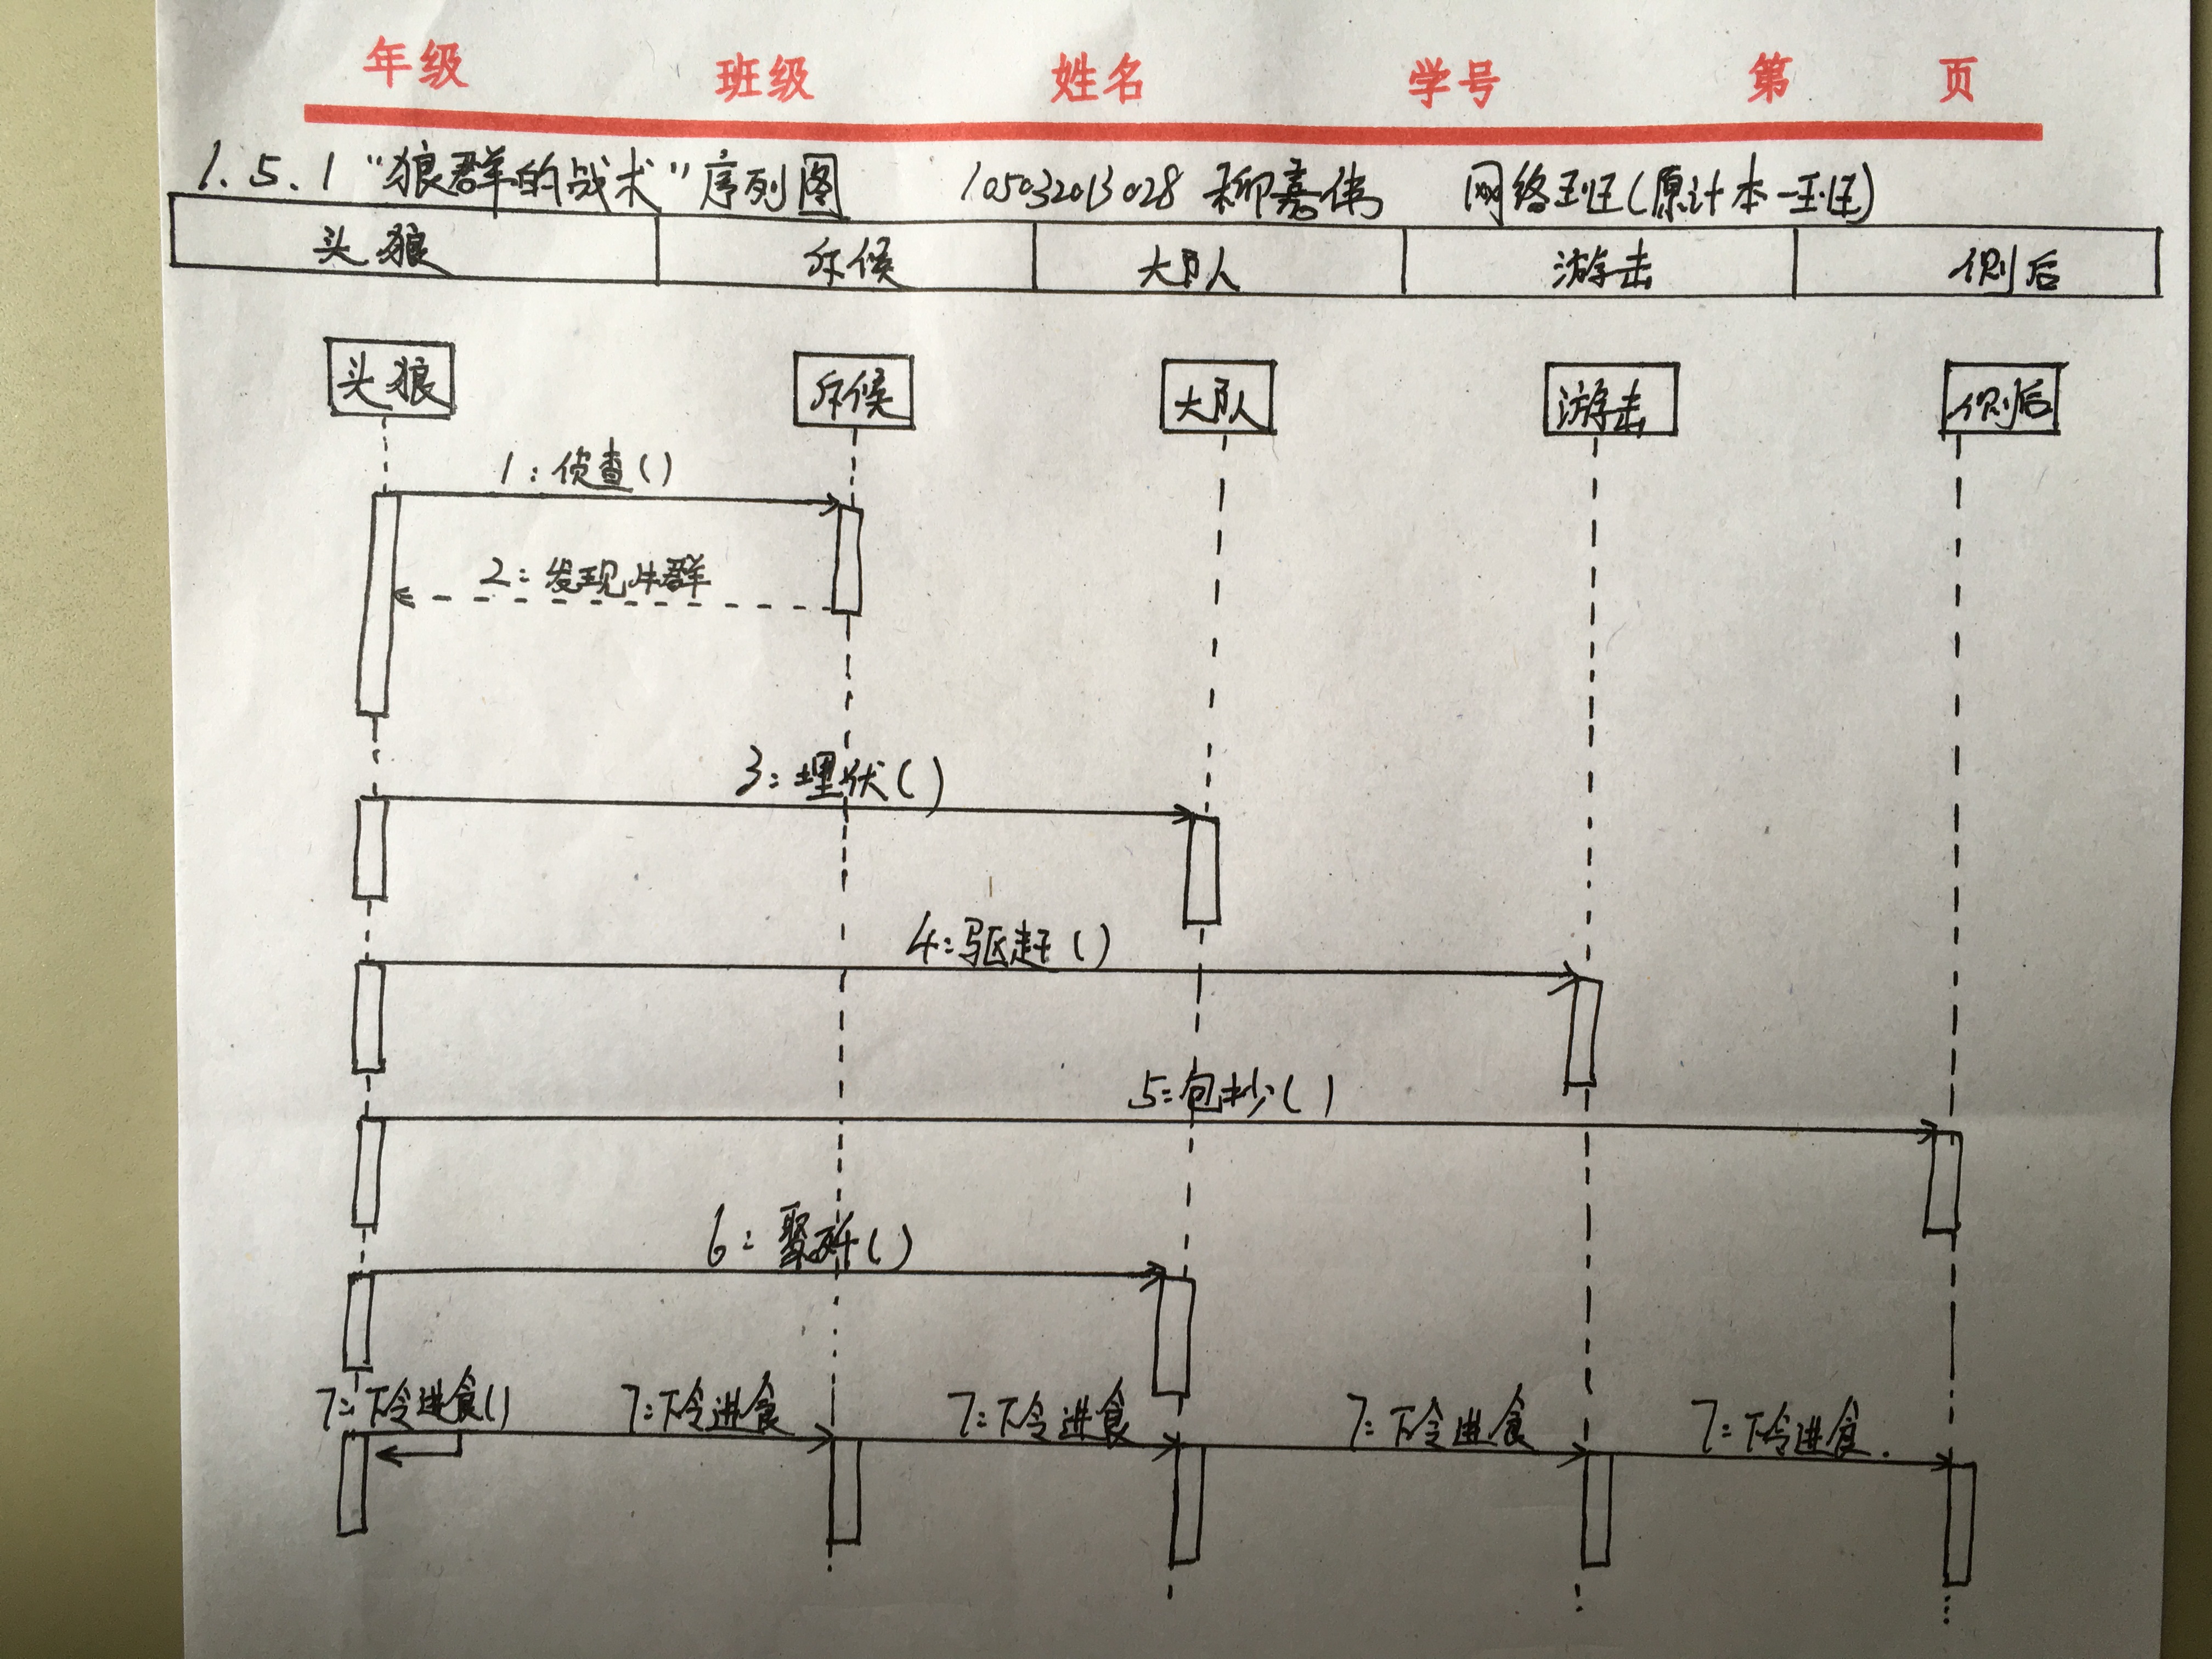 年级 班级 姓名 学号 第 页
1.5.1 “狼群的战术”序列图 105032013028 柳嘉伟 网络班(原计本一班)
头狼 斥候 大队 游击 侧后
头狼 斥候 大队 游击 侧后
1:侦查()
2:发现牛群
3:埋伏()
4:驱赶()
5:包抄()
6:聚歼()
7:下令进食() 7:下令进食 7:下令进食 7:下令进食 7:下令进食.